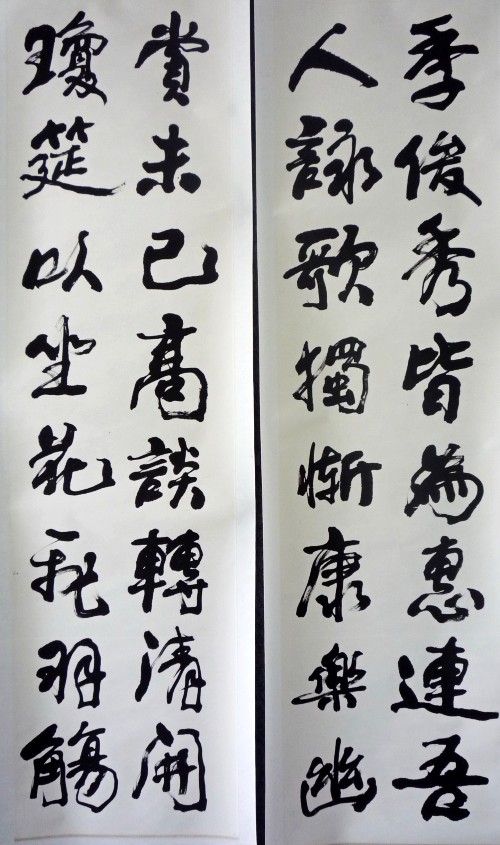 季俊秀皆為惠連吾
人詠歌獨慚康樂幽
賞未已高談轉清開
瓊筵以坐花飛羽觴